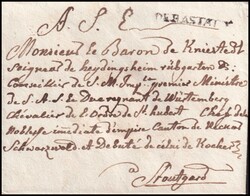 A. S. E.
DE RASTAT
Monsieur le Baron de Kniestedt
Seigneur de heydingsheim
Conseiller de S. M. Imp. premier Ministre
de S. A. S. le Duc regnant de Würtemberg
Chevalier de l'Ordre de St hubert
Noblesse immediate d'empire Canton de Necker
Schwarzwald et Deputé de celui de Kocher
à Stoutgard